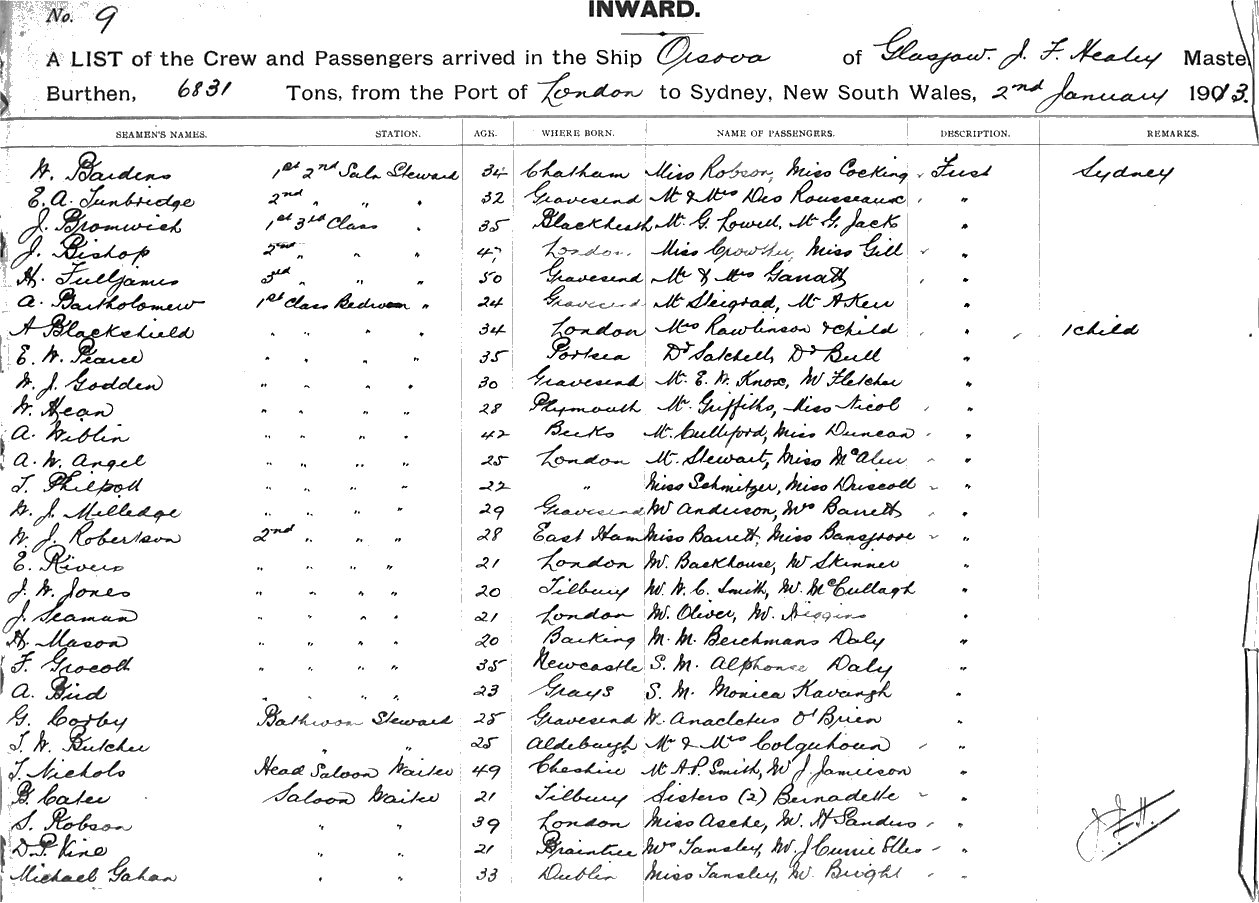 No. 9
INWARD.
A LIST of the Crew and Passengers arrived in the Ship Orsova of Glasgow. J. F. Healey Master
Burthen, 6831 Tons, from the Port of London to Sydney, New South Wales, 2nd January 1913.
SEAMEN'S NAMES. STATION. AGE. WHERE BORN. NAME OF PASSENGERS. DESCRIPTION. REMARKS.
W. Bardens 1st 2nd Saln Steward 34 Chatham Miss Robson, Miss Cocking First Sydney
E. A. Tunbridge 2nd " " " 32 Gravesend Mr & Mrs Des Rousseaux "
J. Bromwich 1st 3rd Class " 35 Blackheath Mr. G. Lowell, Mr G. Jack "
J. Bishop 2nd " " " London Miss Crowther, Miss Gill "
H. Fulljames 3rd " " " 50 Gravesend Mr & Mrs Garratt "
A. Bartholomew 1st Class Bedroom " 24 Gravesend Mr Steigrad, Mr A Kerr "
A Blackshield " " " " 34 London Mrs Rawlinson & child " 1 child
E. W. Pearce " " " " 35 Portsea Dr Satchell, Dr Bull "
W. J. Godden " " " " 30 Gravesend Mr. E. W. Knox, Mr Fletcher "
W. Hean " " " " 28 Plymouth Mr. Griffiths, Miss Nicol "
A. Wiblin " " " " 42 Berks Mr. Culliford, Miss Duncan "
A. W. Angel " " " " 25 London Mr. Stewart, Miss "
T. Philpott " " " " 22 " Miss Schmitzer, Miss Driscoll "
W. J. Milledge " " " " 29 Gravesend Mr Anderson, Mrs Barrett "
W. J. Robertson 2nd " " " 28 East Ham Miss Barrett, Miss Bansgrove "
E. Rivers " " " " 21 London Mr. Backhouse, Mr Skinner "
J. W. Jones " " " " 20 Tilbury Mr. W. C. Smith, Mr. McCullagh "
J. Seaman " " " " 21 London Mr. Oliver, Mr. Higgins "
H. Mason " " " " 20 Barking M. M. Berchmans Daly "
F. Grocott " " " " 35 Newcastle S. M. Alphonse Daly "
A. Bird " " " " 23 Grays S. M. Monica Kavangh "
G. Corby Bathroom Steward 25 Gravesend Anacletus O'Brien "
T. W. Butcher " " 25 Aldeburgh Mr & Mrs Colquhoun "
T. Nichols Head Saloon Waiter 49 Cheshire Mr A. P. Smith, Mr J. Jamieson "
B. Cater Saloon Waiter 21 Tilbury Sisters (2) Bernadette "
S. Robson " " 39 London Miss Asche, Mr. H Sanders "
D. P. Vine " " 21 Braintree Mrs Tansley, Mr. J Currie Elles "
Michael Gahan " " 33 Dublin Miss Tansley, Mr. Bright "
J.F.H.